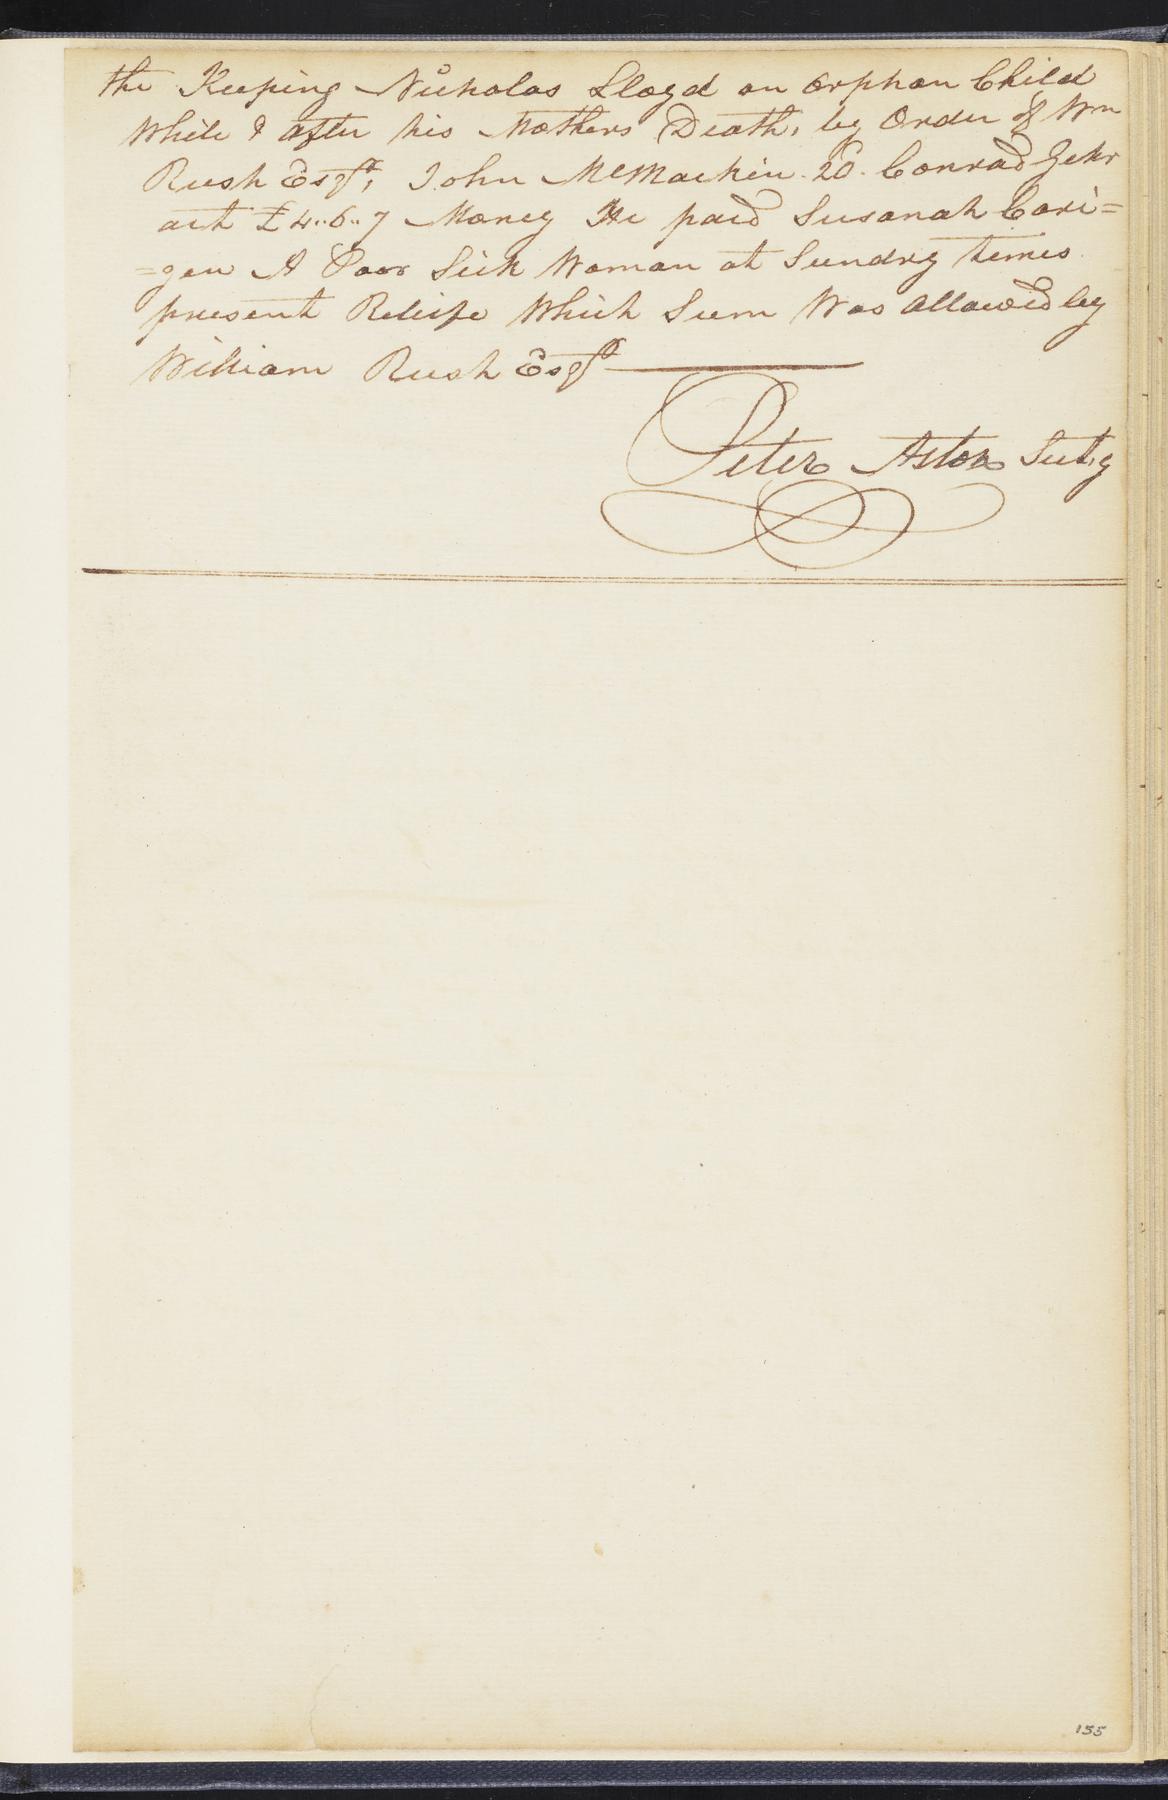 the Keeping Nicholas Lloyd an orphan Child
While & after his Mothers Death, by Order of Wm
Rush Esqr, John McMachin. 20. Conrad Zehr
act £4..6..7 Money He paid Susanah Cari=
=gen A Poor Sick Woman at Sundry times
present Releife Which Sum Was allowed by
William Rush Esqr
Peter Aston Secty
155